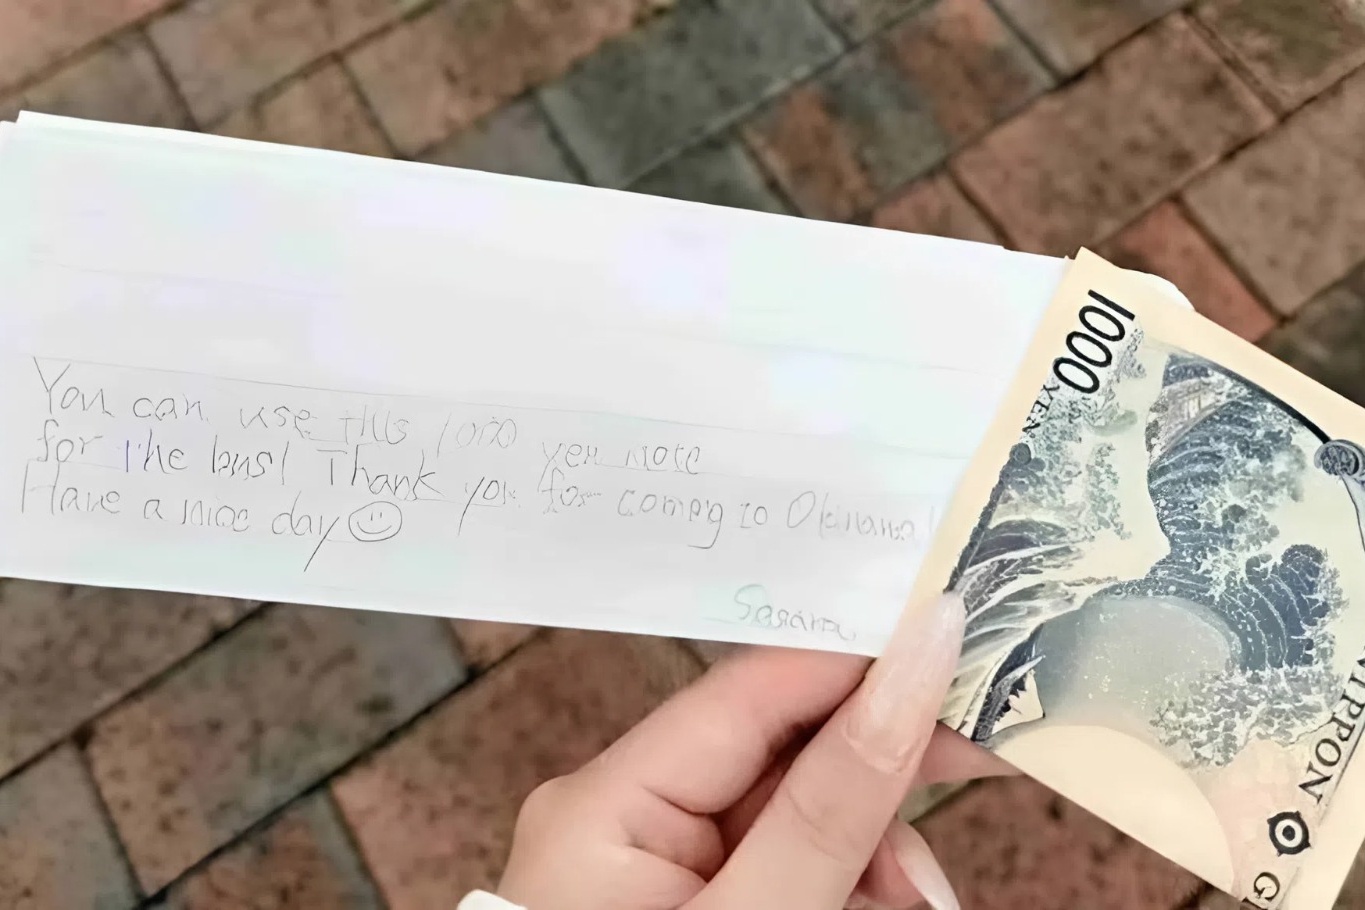 You can use this 1000 yen note
for the bus! Thank you for coming to Okinawa!
Have a nice day
1000
YEN
NIPPON